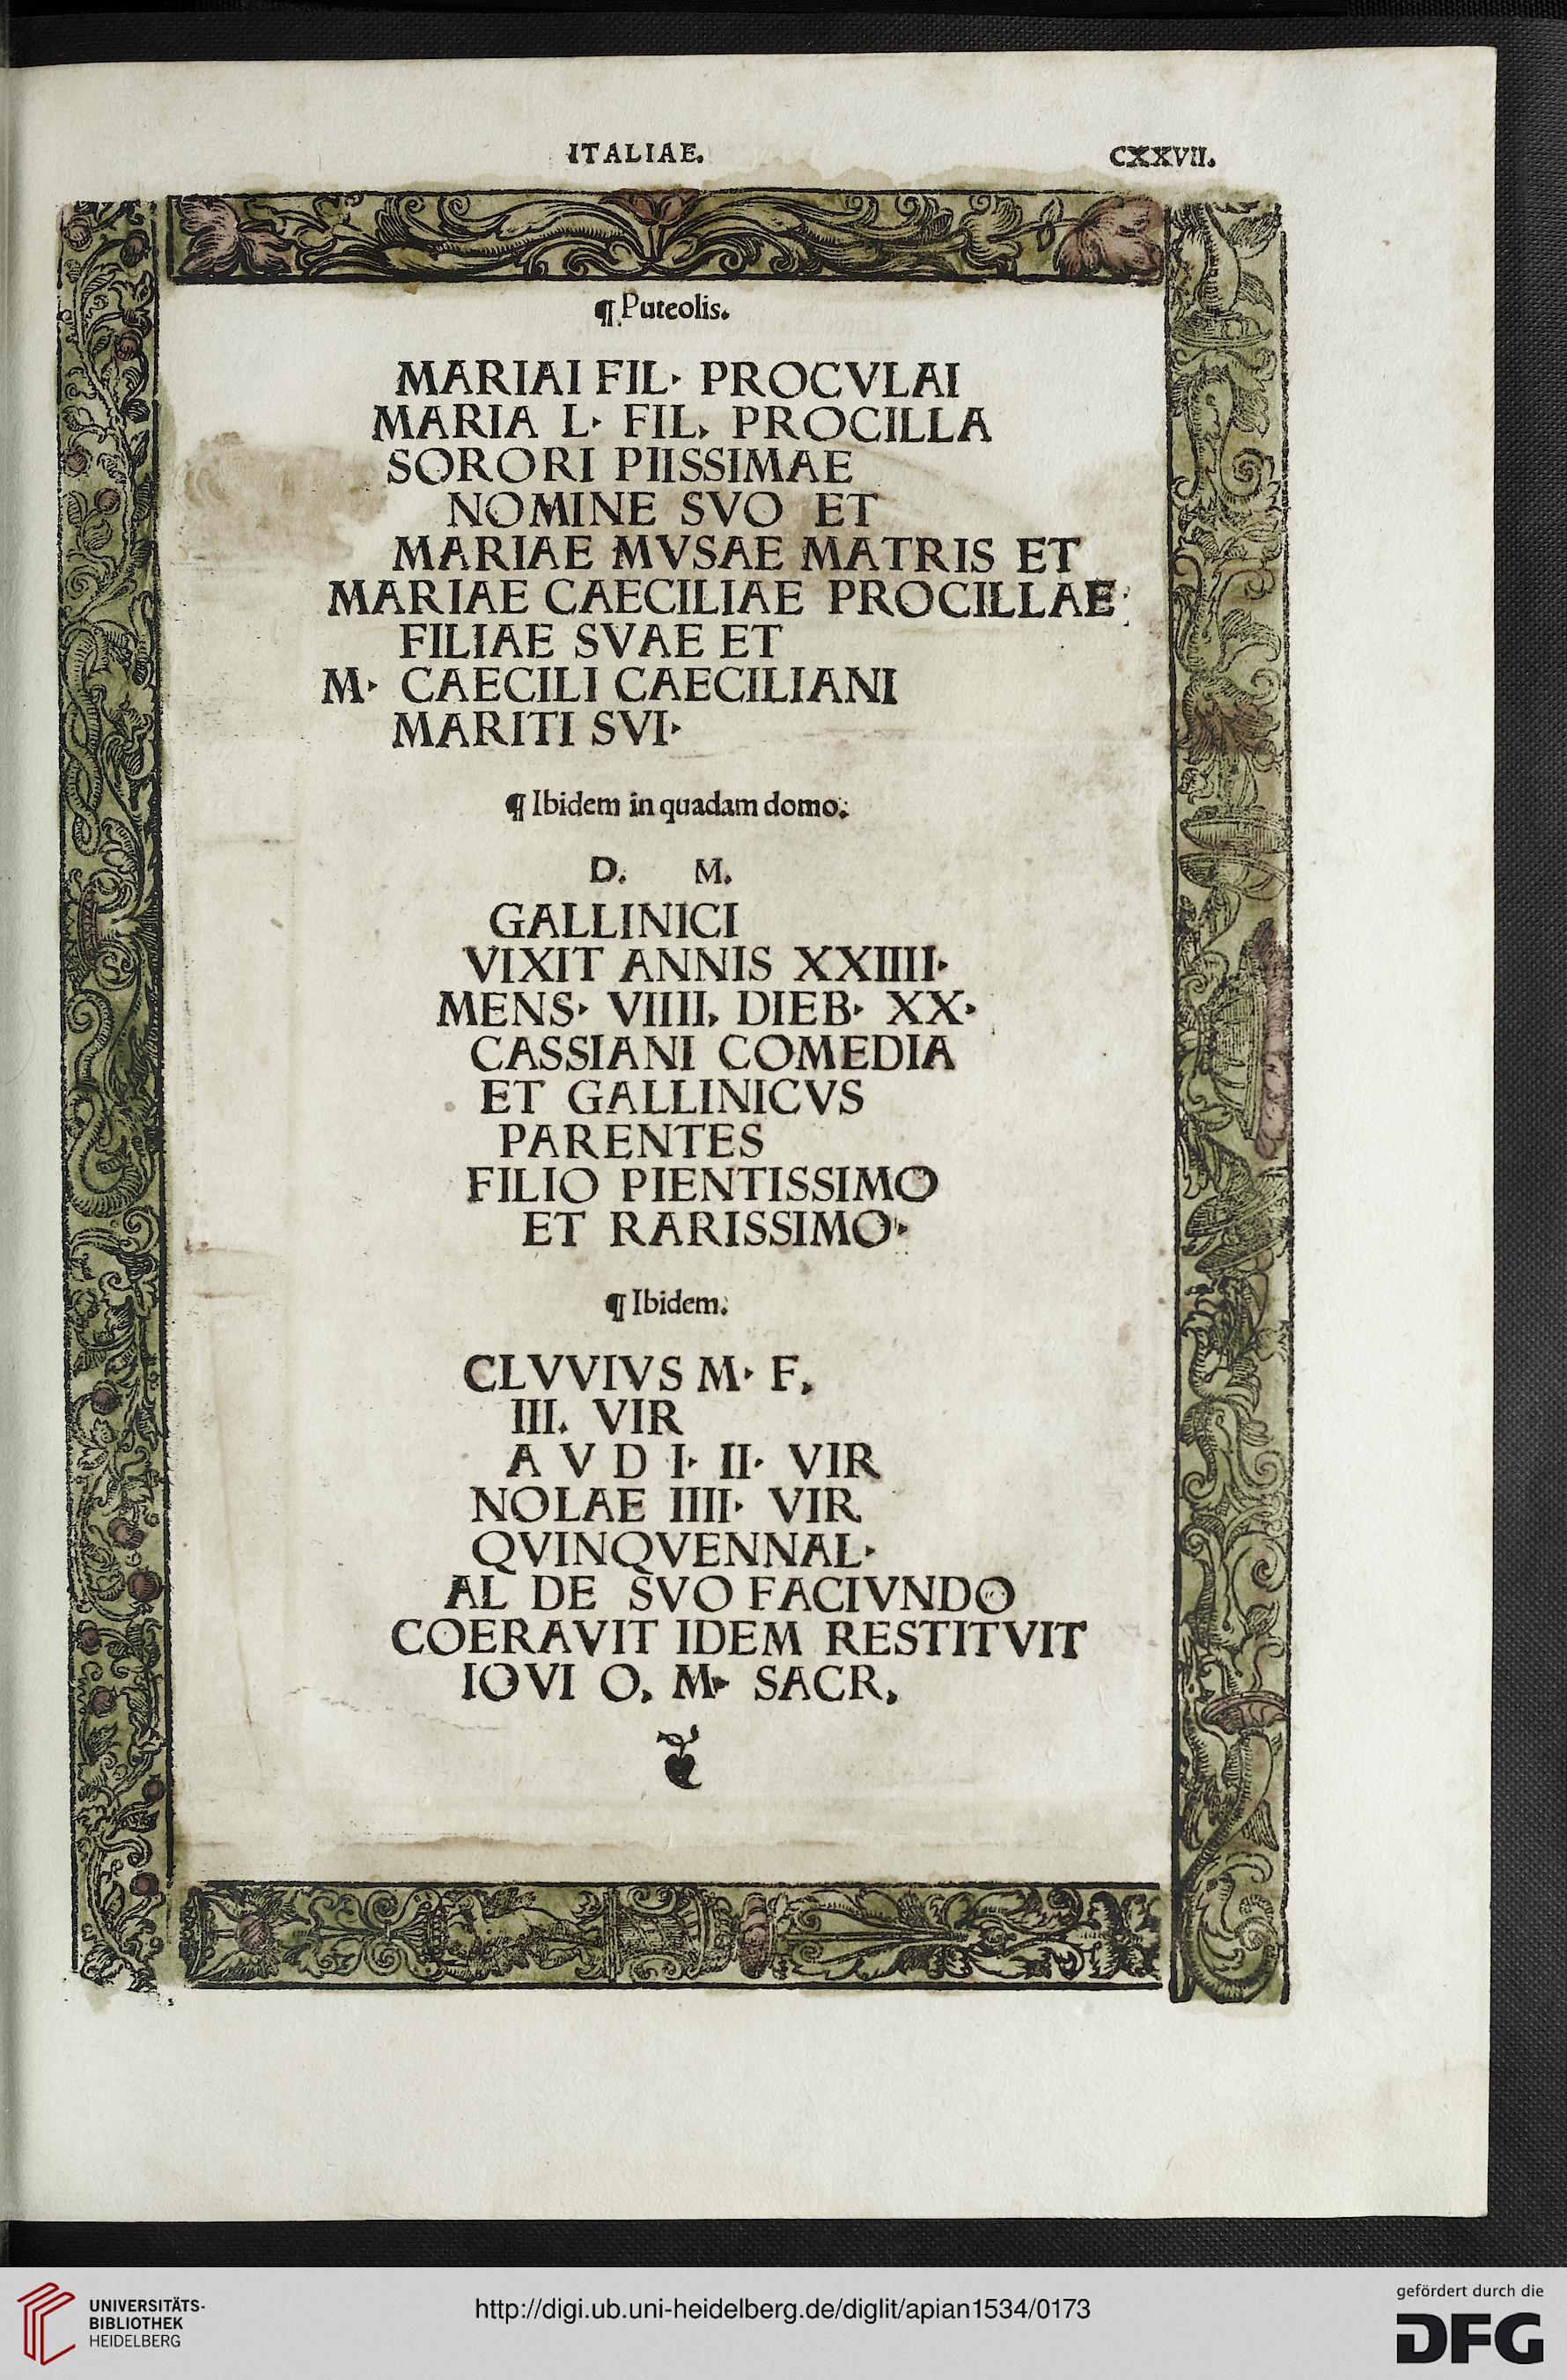 ITALIAE.
CXXVII.
¶ Puteolis.
MARIAI FIL· PROCVLAI
MARIA L· FIL, PROCILLA
SORORI PIISSIMAE
NOMINE SVO ET
MARIAE MVSAE MATRIS ET
MARIAE CAECILIAE PROCILLAE
FILIAE SVAE ET
M· CAECILI CAECILIANI
MARITI SVI·
¶ Ibidem in quadam domo.
D. M.
GALLINICI
VIXIT ANNIS XXIIIII·
MENS· VIIII, DIEB· XX·
CASSIANI COMEDIA
ET GALLINICVS
PARENTES
FILIO PIENTISSIMO
ET RARISSIMO·
¶ Ibidem.
CLVVIVS M· F,
III. VIR
A V D I· II· VIR
NOLAE IIII· VIR
QVINQVENNAL·
AL DE SVO FACIVNDO
COERAVIT IDEM RESTITVIT
IOVI O, M· SACR,
UNIVERSITÄTS-
BIBLIOTHEK
HEIDELBERG
http://digi.ub.uni-heidelberg.de/diglit/apian1534/0173
gefördert durch die
DFG